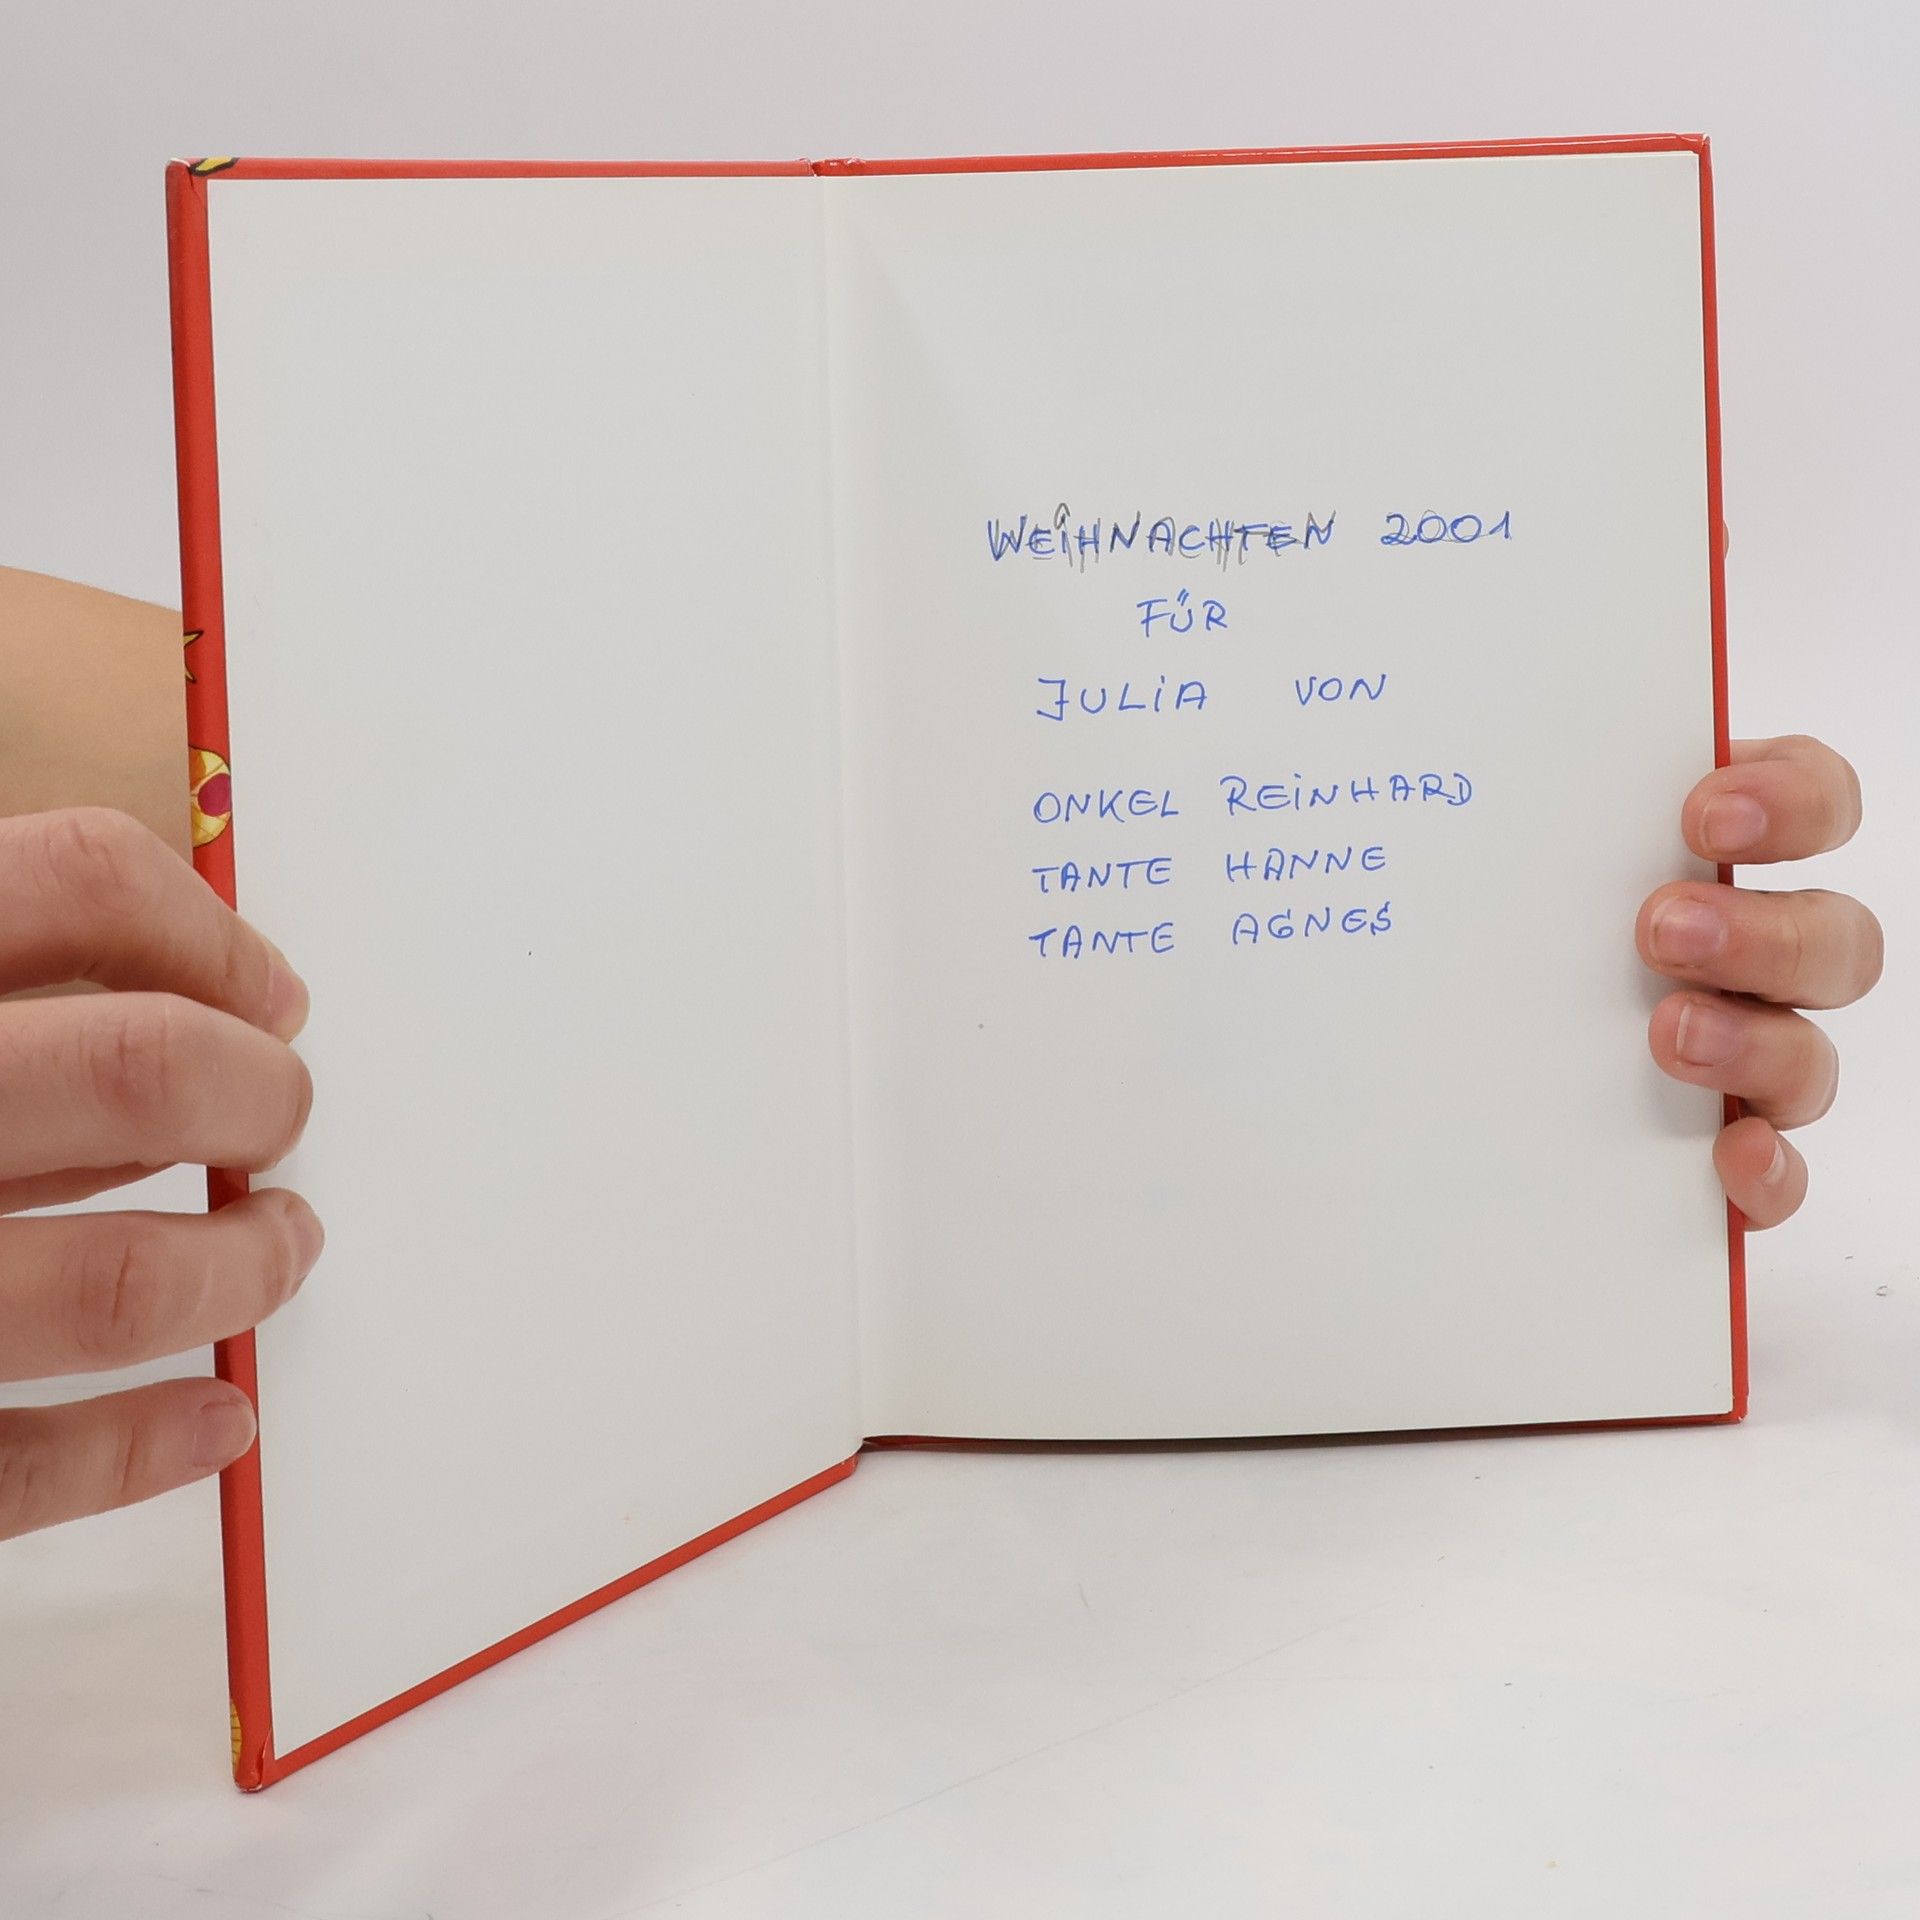 WEIHNACHTEN 2001
FÜR
JULIA VON
ONKEL REINHARD
TANTE HANNE
TANTE AGNES